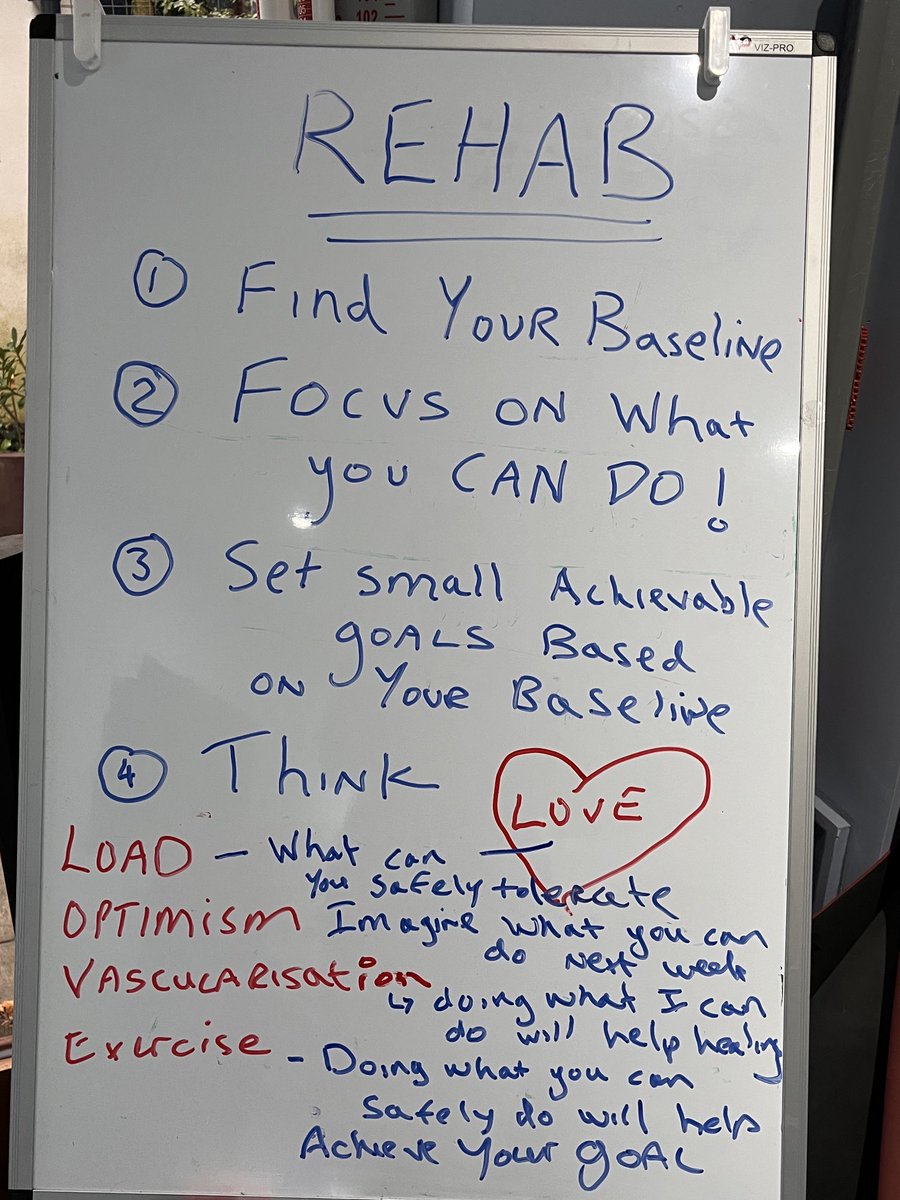 102
VIZ-PRO
REHAB
① Find Your Baseline
② Focus on What
you CAN DO!
③ Set small Achievable
goals Based
on Your Baseline
④ Think LOVE
LOAD - What can
you safely tolerate
OPTIMISM Imagine what you can
do next week
VASCULARISation
↳ doing what I can
do will help healing
Exercise - Doing what you can
safely do will help
Achieve your goal